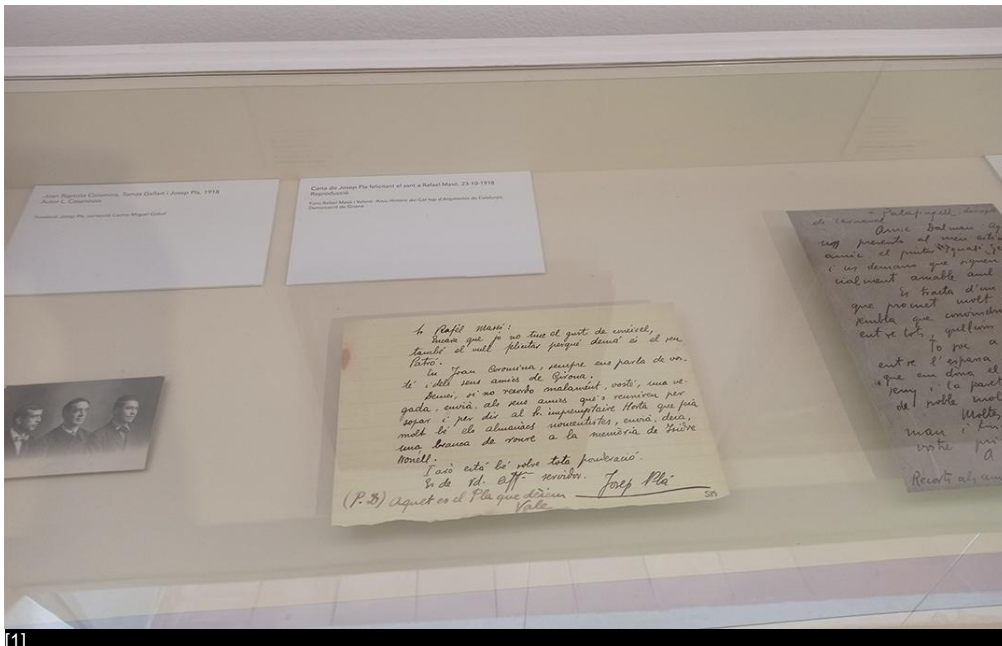 Joan Baptista Coromina, Tomàs Gallart i Josep Pla, 1918
Autor L. Casanovas
Fundació Josep Pla,
Carta de Josep Pla felicitant el sant a Rafael Masó, 23-10-1918
Reproducció
Fons Rafael Masó i Valentí. Arxiu Històric del Col·legi d'Arquitectes de Catalunya,
Demarcació de Girona
Sr Rafèl Massó:
Encara que jo no tinc el gust de coneixel,
també el vull felicitar perquè demà és el seu
Patró.
En Joan Coromina, sempre ens parla de vos-
té i dels seus amics de Girona.
Demés, si no recordo malament, vostè, una ve-
gada, envià, als seus amics que's reuniren per
sopar i per dir al Sr. impremptaire Horta que feia
molt bé els almanacs noucentistes, envià, deia,
una branca de roure a la memòria de Isidre
Nonell.
I això està bé sobre tota ponderació.
Es de Vd. affm servidor. Josep Plá
(P.D) Aquet es el Pla que dèiem
Vale
- Palafrugell,
de Carnaval
Amic Dalmau:
vos presento al meu
amic, el pintor quasi
i us demano que siguen
cialment amable amb
Es tracta d'un
que promet molt
sembla que convindr
entre tots,
Jo poc a
entre l'espana
que em dona el
seny i la parl
de poble
Moltes
man i
vostre
A
Records als am
[1]